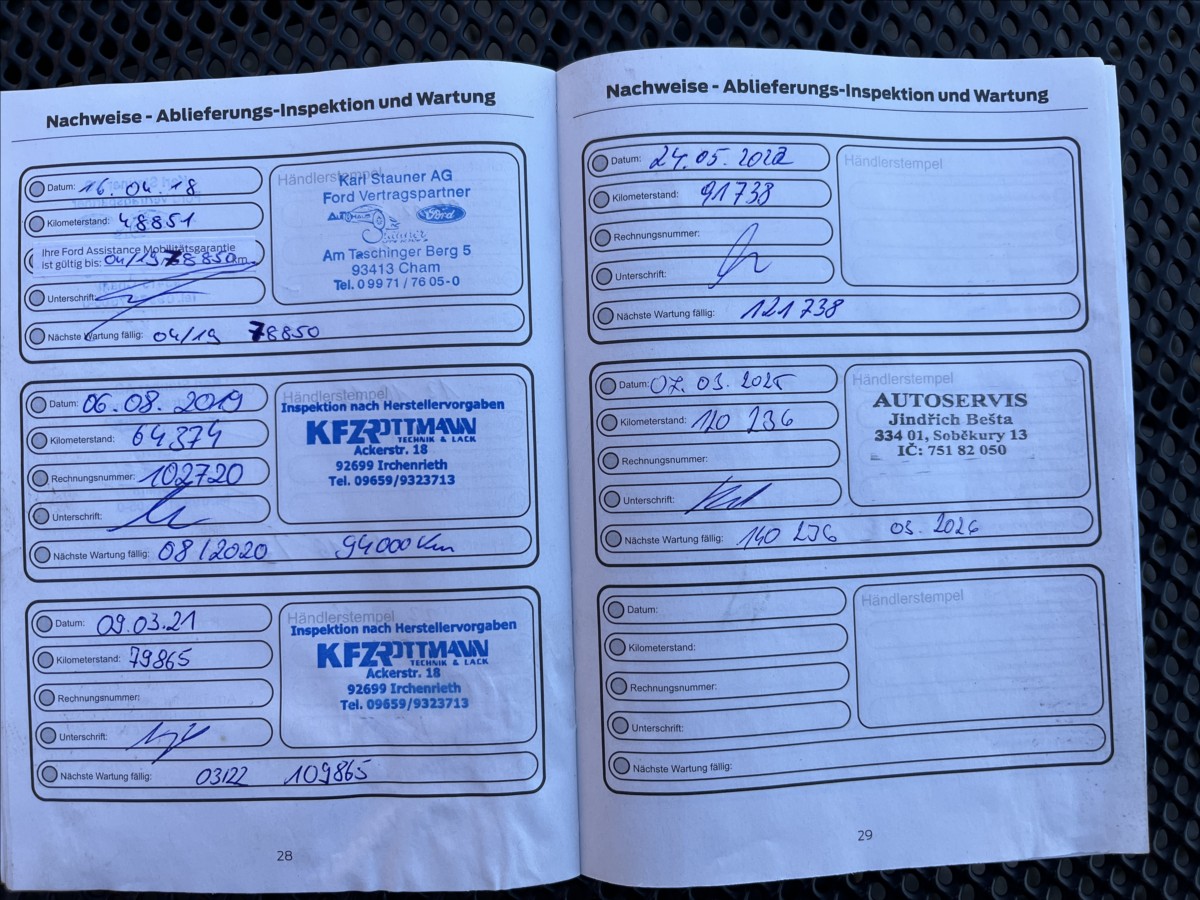 Nachweise - Ablieferungs-Inspektion und Wartung
Datum: 16.04.18
Kilometerstand: 48851
Ihre Ford Assistance Mobilitätsgarantie
ist gültig bis: 04/19 78850
Unterschrift:
Nächste Wartung fällig: 04/19 78850
Händlerstempel
Karl Stauner AG
Ford Vertragspartner
Ford
Stauner
Am Taschinger Berg 5
93413 Cham
Tel. 0 99 71 / 76 05-0
Datum: 06.08.2019
Kilometerstand: 64374
Rechnungsnummer: 102720
Unterschrift:
Nächste Wartung fällig: 08/2020 94000 Km
Händlerstempel
Inspektion nach Herstellervorgaben
KFZ ROTTMANN
TECHNIK & LACK
Ackerstr. 18
92699 Irchenrieth
Tel. 09659/9323713
Datum: 09.03.21
Kilometerstand: 79865
Rechnungsnummer:
Unterschrift:
Nächste Wartung fällig: 03/22 109865
Händlerstempel
Inspektion nach Herstellervorgaben
KFZ ROTTMANN
TECHNIK & LACK
Ackerstr. 18
92699 Irchenrieth
Tel. 09659/9323713
28
Nachweise - Ablieferungs-Inspektion und Wartung
Datum: 24.05.2022
Kilometerstand: 91738
Rechnungsnummer:
Unterschrift:
Nächste Wartung fällig: 121738
Händlerstempel
Datum: 07.03.2025
Kilometerstand: 120 236
Rechnungsnummer:
Unterschrift:
Nächste Wartung fällig: 140 236 03.2026
Händlerstempel
AUTOSERVIS
Jindřich Bešta
334 01, Soběkury 13
IČ: 751 82 050
Datum:
Kilometerstand:
Rechnungsnummer:
Unterschrift:
Nächste Wartung fällig:
Händlerstempel
29